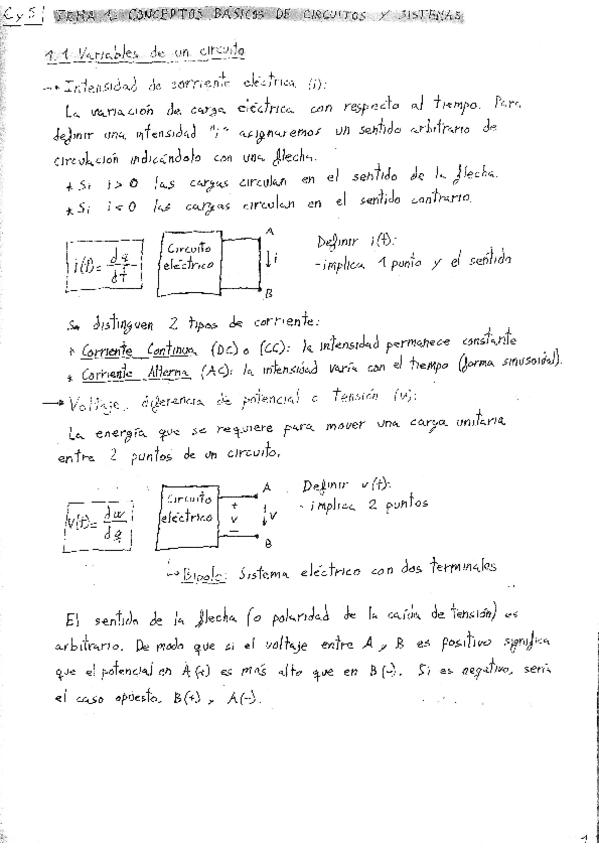 CyS
TEMA 1: CONCEPTOS BÁSICOS DE CIRCUITOS Y SISTEMAS
1.1 Variables de un circuito
→ Intensidad de corriente eléctrica (i):
La variación de carga eléctrica con respecto al tiempo. Para
definir una intensidad "i" asignaremos un sentido arbitrario de
circulación indicándolo con una flecha.
* Si i > 0 las cargas circulan en el sentido de la flecha.
* Si i < 0 las cargas circulan en el sentido contrario.
i(t) = dq/dt
Circuito
eléctrico
A
i
B
Definir i(t):
- implica 1 punto y el sentido
Se distinguen 2 tipos de corriente:
* Corriente Continua (DC) o (CC): la intensidad permanece constante
* Corriente Alterna (AC): la intensidad varía con el tiempo (forma sinusoidal).
→ Voltaje, diferencia de potencial o Tensión (v):
La energía que se requiere para mover una carga unitaria
entre 2 puntos de un circuito.
v(t) = dw/dq
Circuito
eléctrico
+
v
-
A
v
B
Definir v(t):
- implica 2 puntos
↳ Bipolo: Sistema eléctrico con dos terminales
El sentido de la flecha (o polaridad de la caída de tensión) es
arbitrario. De modo que si el voltaje entre A y B es positivo significa
que el potencial en A(+) es más alto que en B(-). Si es negativo, sería
el caso opuesto. B(+) y A(-).
1